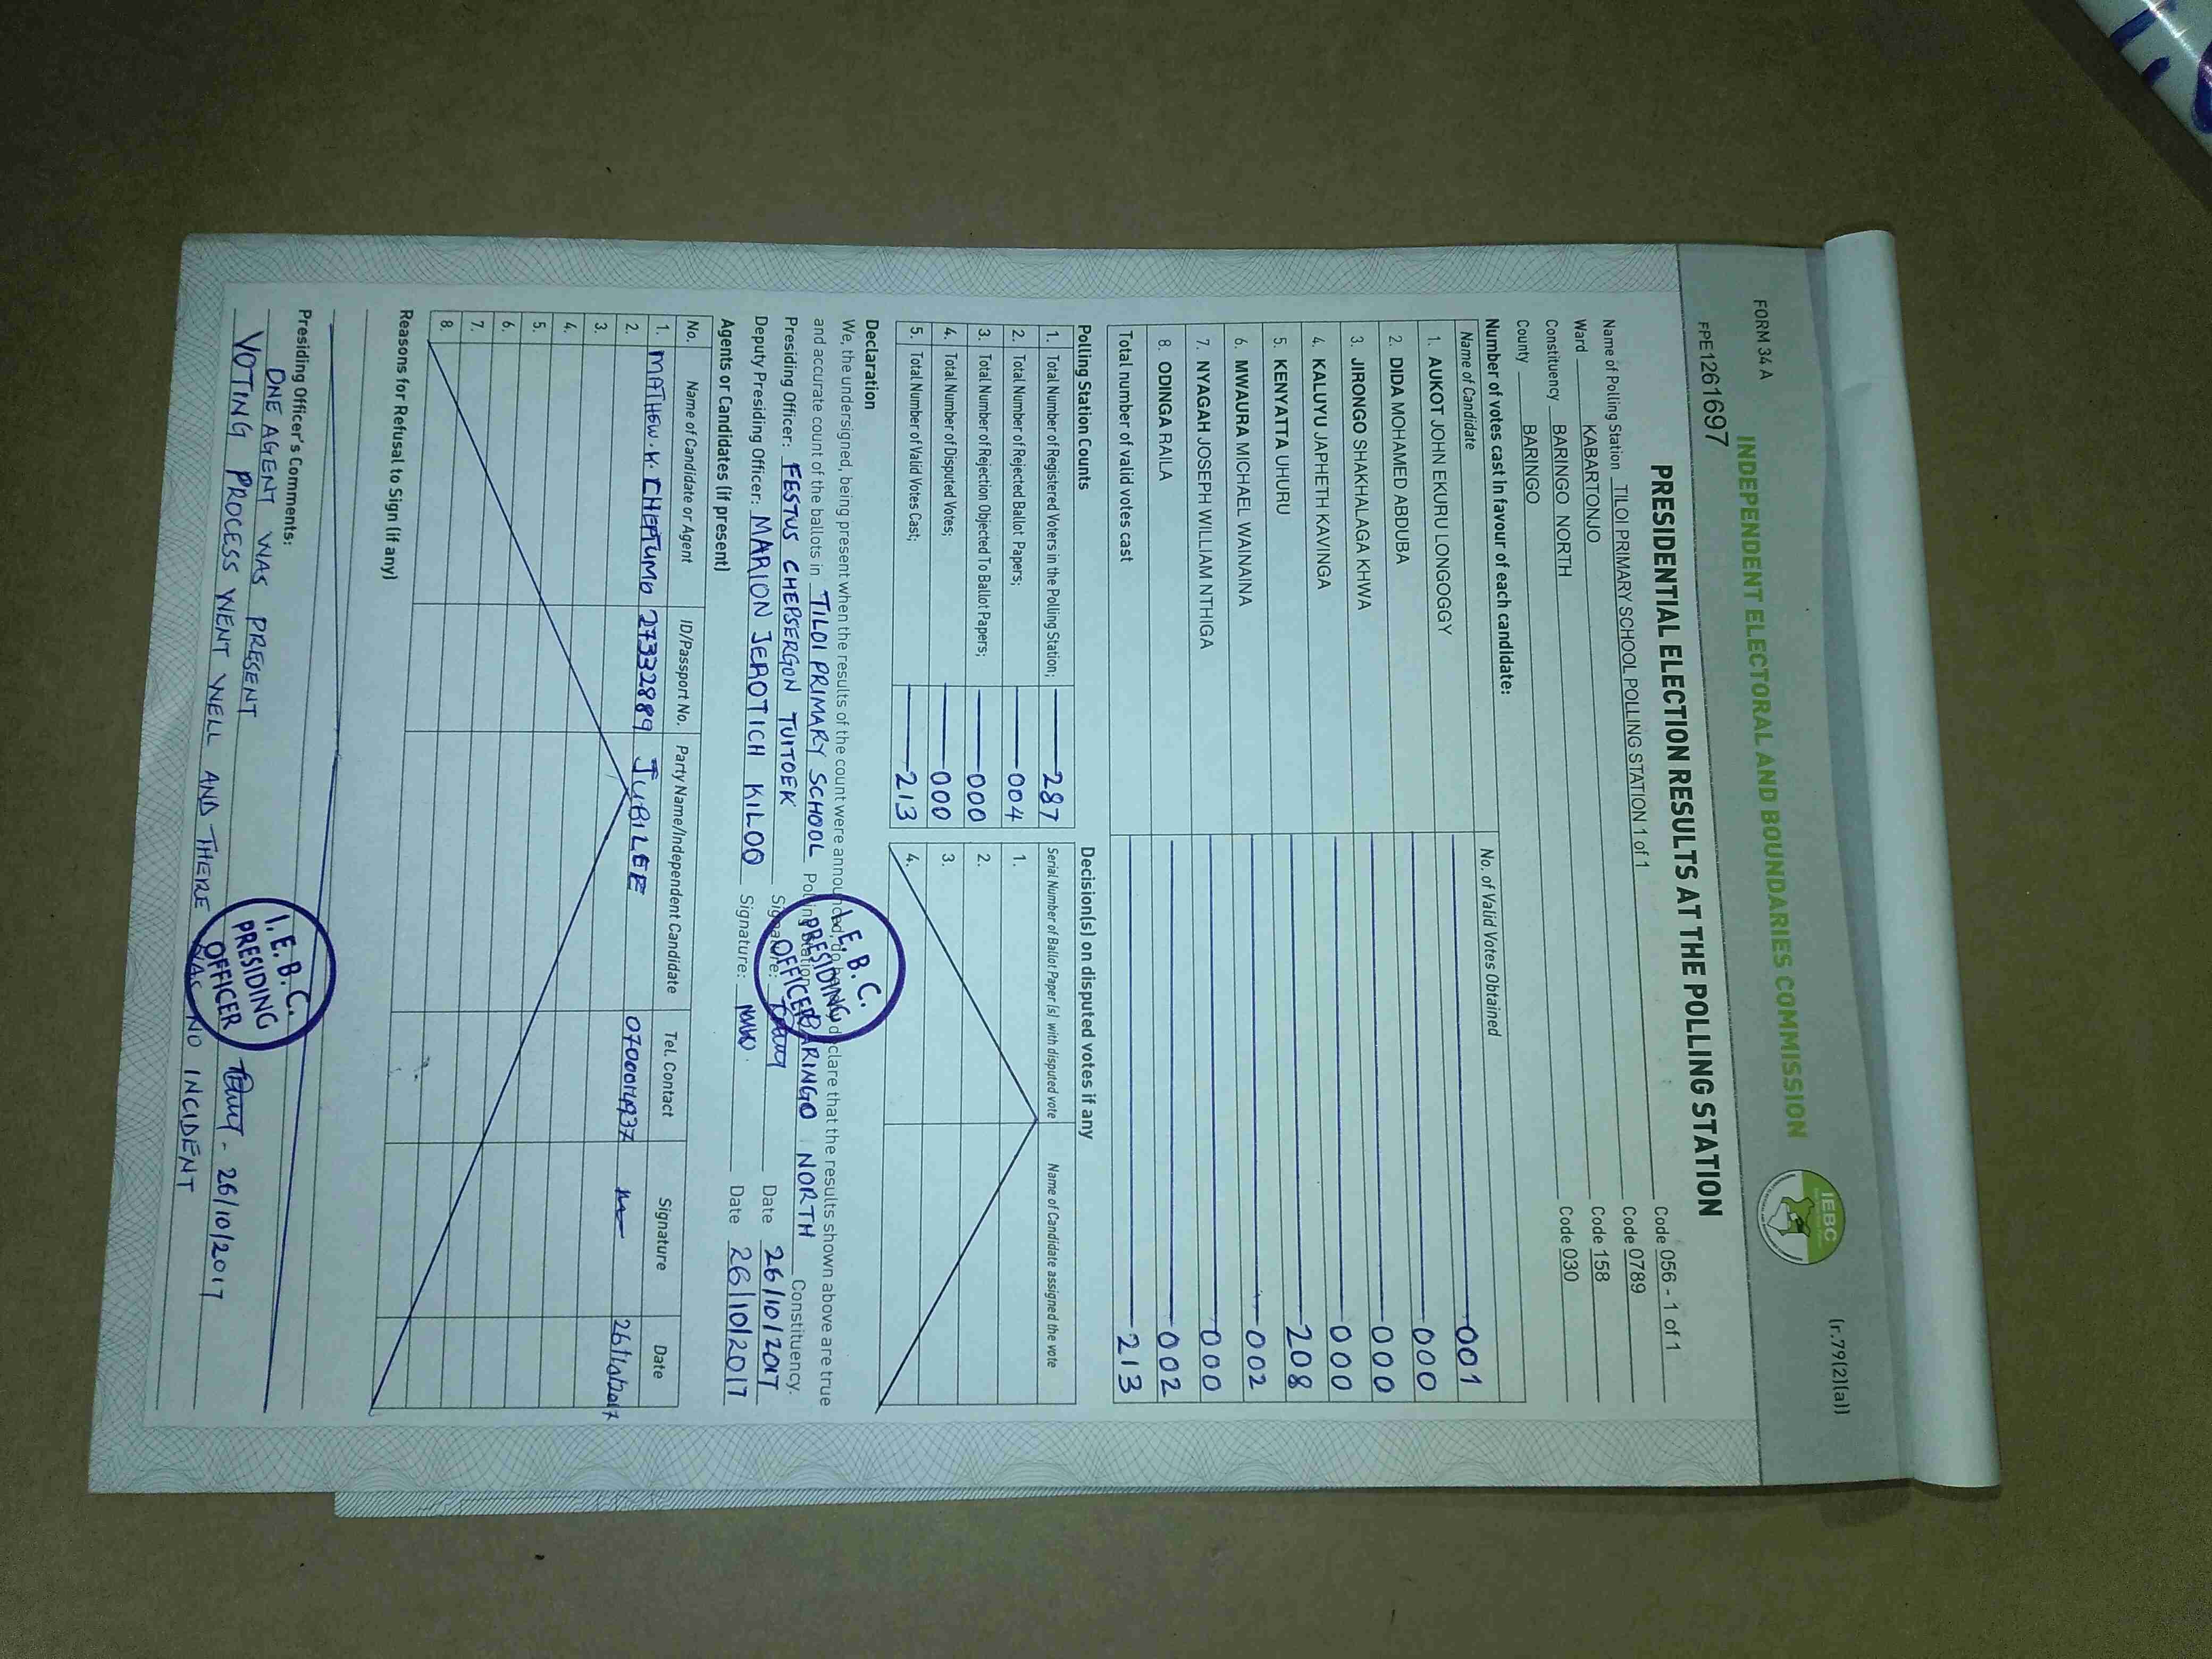 FORM 34 A
(r.79(2)(a))
INDEPENDENT ELECTORAL AND BOUNDARIES COMMISSION
IEBC
FPE1261697
PRESIDENTIAL ELECTION RESULTS AT THE POLLING STATION
Name of Polling Station TILOI PRIMARY SCHOOL POLLING STATION 1 of 1 Code 056 - 1 of 1
Ward KABARTONJO Code 0789
Constituency BARINGO NORTH Code 158
County BARINGO Code 030
Number of votes cast in favour of each candidate:
Name of Candidate No. of Valid Votes Obtained
1. AUKOT JOHN EKURU LONGOGGY 001
2. DIDA MOHAMED ABDUBA 000
3. JIRONGO SHAKHALAGA KHWA 000
4. KALUYU JAPHETH KAVINGA 000
5. KENYATTA UHURU 208
6. MWAURA MICHAEL WAINAINA 002
7. NYAGAH JOSEPH WILLIAM NTHIGA 000
8. ODINGA RAILA 002
Total number of valid votes cast 213
Polling Station Counts
1. Total Number of Registered Voters in the Polling Station; 287
2. Total Number of Rejected Ballot Papers; 004
3. Total Number of Rejection Objected To Ballot Papers; 000
4. Total Number of Disputed Votes; 000
5. Total Number of Valid Votes Cast; 213
Decision(s) on disputed votes if any
Serial Number of Ballot Paper (s) with disputed vote Name of Candidate assigned the vote
1.
2.
3.
4.
Declaration
We, the undersigned, being present when the results of the count were announced, do hereby declare that the results shown above are true
and accurate count of the ballots in TILOI PRIMARY SCHOOL Polling Station BARINGO NORTH Constituency.
Presiding Officer: FESTUS CHEPSERGON TUITOEK Signature: Date 26/10/2017
Deputy Presiding Officer: MARION JEROTICH KILOO Signature: Date 26/10/2017
I. E. B. C.
PRESIDING
OFFICER
Agents or Candidates (if present)
No. Name of Candidate or Agent ID/Passport No. Party Name/Independent Candidate Tel. Contact Signature Date
1. MATHEW.K. CHEPTUMO 27332889 JUBILEE 0700014937 26/10/2017
2.
3.
4.
5.
6.
7.
8.
Reasons for Refusal to Sign (if any)
Presiding Officer's Comments:
ONE AGENT WAS PRESENT
VOTING PROCESS WENT WELL AND THERE WAS NO INCIDENT
I. E. B. C.
PRESIDING
OFFICER
26/10/2017